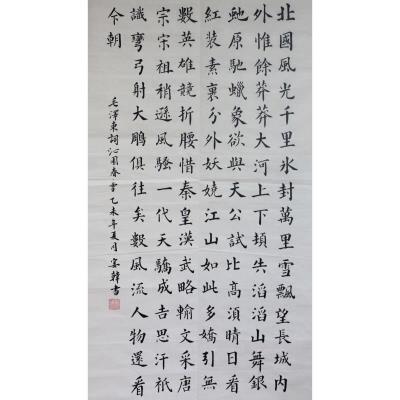 北國風光千里氷封萬里雪飄望長城内
外惟餘莽莽大河上下頓失滔滔山舞銀
虵原馳蠟象欲與天公試比高須晴日看
紅裝素裹分外妖嬈江山如此多嬌引無
數英雄競折腰惜秦皇漢武略輸文采唐
宗宋祖稍遜風騷一代天驕成吉思汗祇
識彎弓射大鵰俱往矣數風流人物還看
今朝
毛澤東詞沁園春雪乙未年夏月韓書